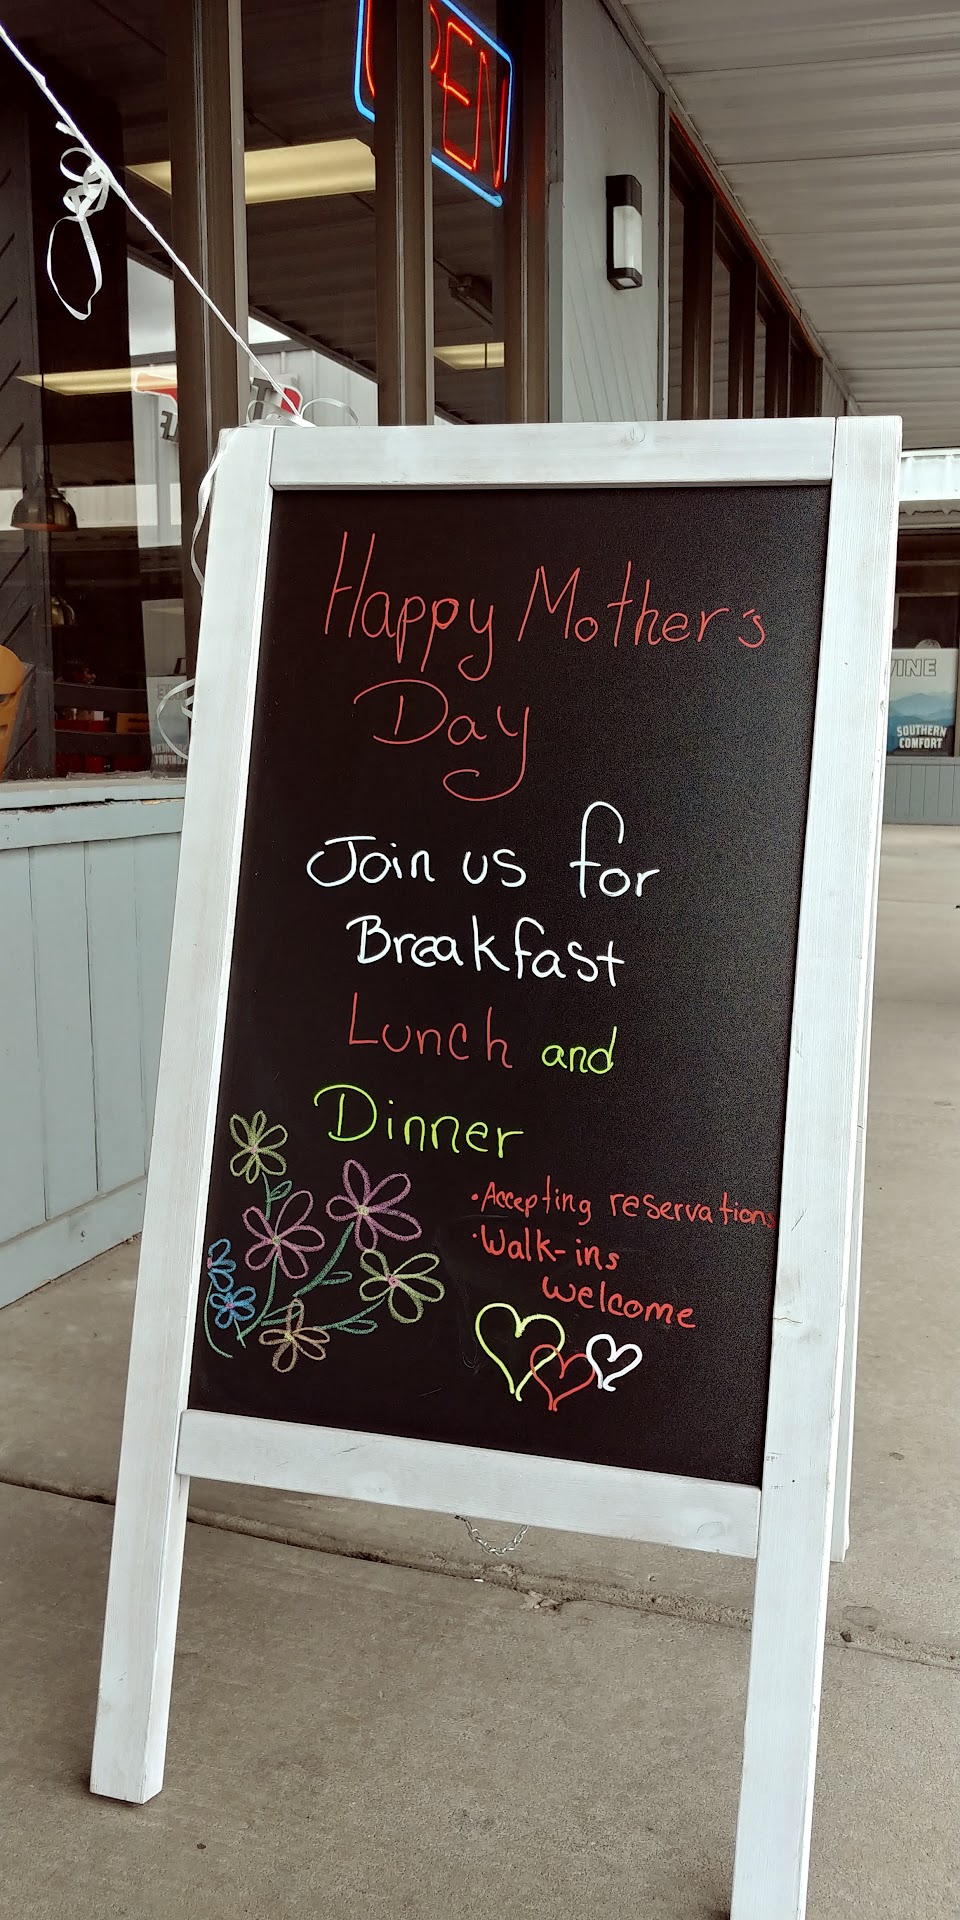 OPEN
Happy Mother's
Day
Join us for
Breakfast
Lunch and
Dinner
•Accepting reservations
•Walk-ins
welcome
SOUTHERN
COMFORT